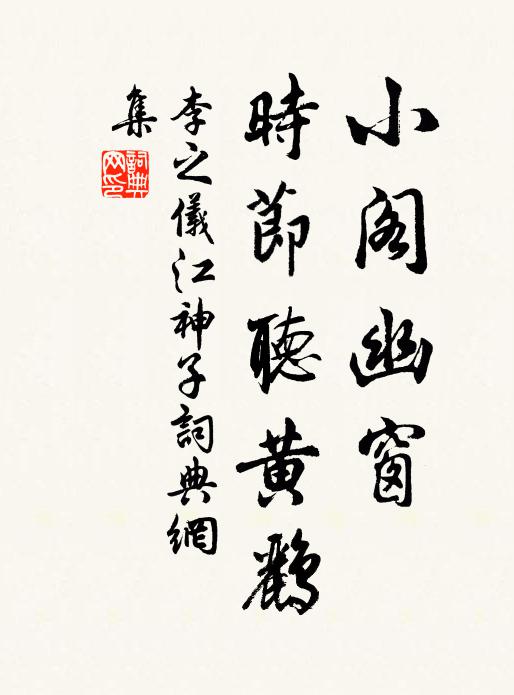 小阁幽窗
時節聽黄鸝
李之儀江神子詞典網
集
詞典
网印